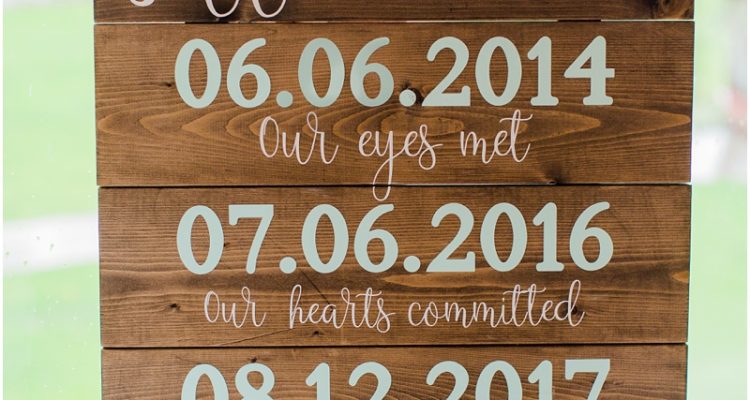 06.06.2014
Our eyes met
07.06.2016
Our hearts committed
08.12.2017